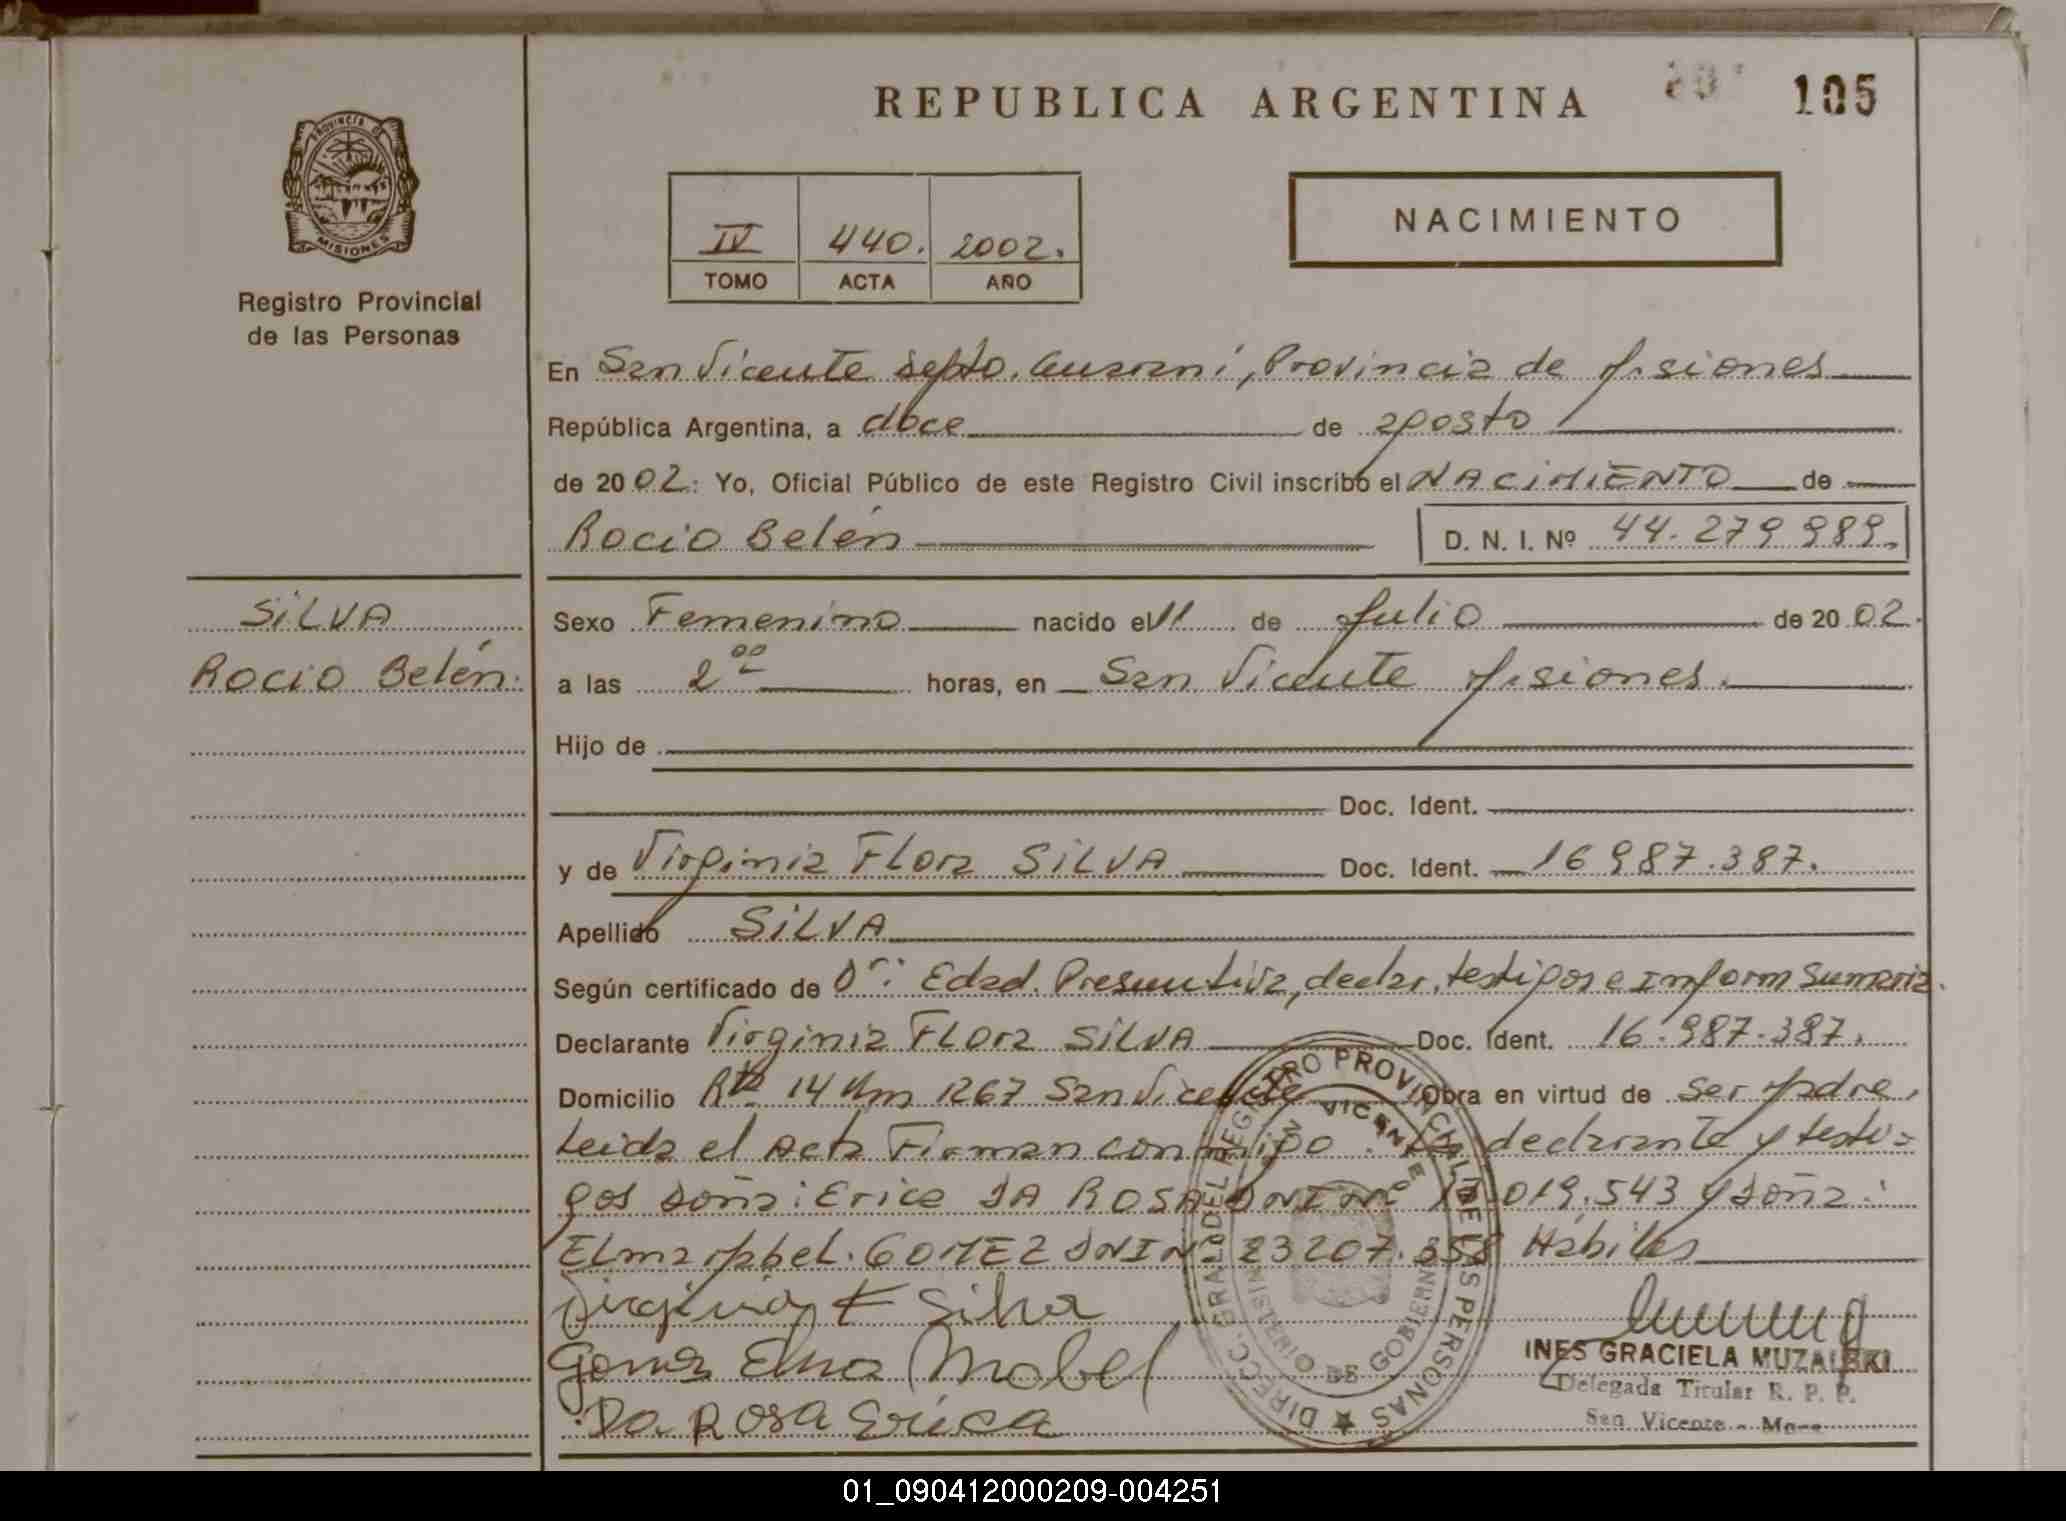 REPUBLICA ARGENTINA
105
PROVINCIA DE
MISIONES
Registro Provincial
de las Personas
NACIMIENTO
IV 440. 2002.
TOMO ACTA AÑO
En San Vicente Depto. Guarani, Provincia de Misiones
República Argentina, a doce de agosto
de 2002: Yo, Oficial Público de este Registro Civil inscribo el NACIMIENTO de
Rocio Belén D. N. I. Nº 44.279 989.
SILVA
Rocio Belén.
Sexo Femenino nacido el 11 de Julio de 2002.
a las 2 00 horas, en San Vicente Misiones.
Hijo de
Doc. Ident.
y de Virginia Flora SILVA Doc. Ident. 16 987.387.
Apellido SILVA
Según certificado de Edad Presuntiva, declar. testigos e Inform Sumaria.
Declarante Virginia Flora SILVA Doc. Ident. 16.987.387.
Domicilio Rta 14 Km 1267 San Vicente Obra en virtud de ser Madre,
Leida el Acta Firman conmigo: La declarante y testi=
gos Doña: Erica DA ROSA DNI Nº 019.543 y Doña:
Elma Mabel GOMEZ DNI Nº 23 207.358 Habiles
Virginia F Silva
Gomez Elma Mabel
Da Rosa Erica
DIRECC. GRAL. DEL REGISTRO PROVINCIAL DE LAS PERSONAS
SAN VICENTE
MINISTERIO DE GOBIERNO
INES GRACIELA MUZALSKI
Delegada Titular R. P. P.
San Vicente - Mnes
01_090412000209-004251